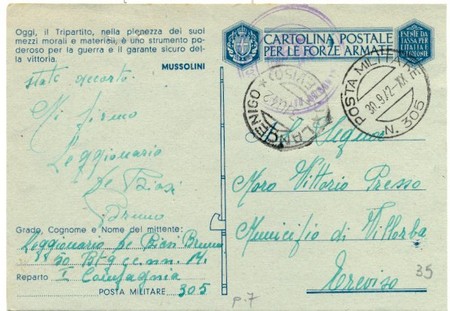 Oggi, il Tripartito, nella plenezza dei suoi
mezzi morali e materiali, è uno strumento po-
deroso per la guerra e il garante sicuro del-
la vittoria.
MUSSOLINI
CARTOLINA POSTALE
PER LE FORZE ARMATE
ESENTE DA
TASSA PER
L'ITALIA E
COLONIE
POSTA MILITARE
30.9.42-XX
N. 305
state
Mi firmo
Leggionario
De Biasi
Bruno
Al Signor
Moro Vittorio Presso
Municipio di Villorba
Treviso
Grado, Cognome e Nome del mittente:
Leggionario De Biasi Bruno
50 Btg cc. nn. M.
Reparto I Compagnia
POSTA MILITARE 305
35
p.7